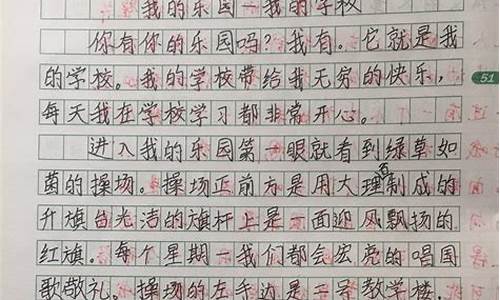 我的乐园—我的学校
你有你的乐园吗?我有。它就是我
的学校。我的学校带给我无穷的快乐,
每天我在学校学习都非常开心。
51
进入我的乐园第一眼就看到绿草如
菌的操场。操场正前方是用大理石制成的
升旗台光洁的旗杆上是一面迎风飘扬的
红旗。每个星期一我们都会宏亮的唱国
歌敬礼。操场的左手边是二号教学楼,